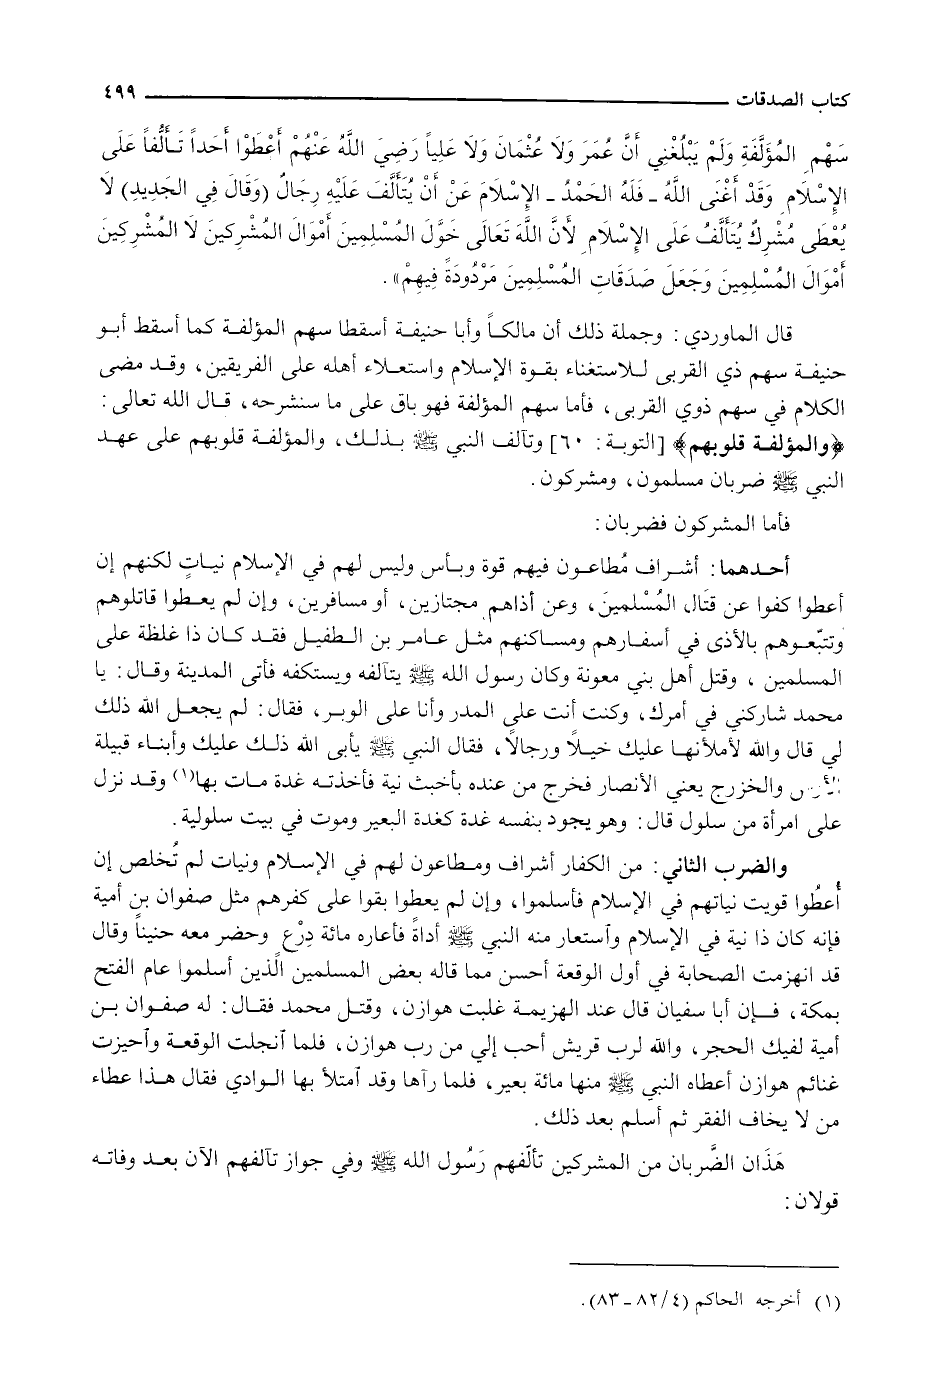 كتاب الصدقات ٤٩٩
سَهْمِ المُؤَلَّفَةِ وَلَمْ يَبْلُغْنِي أَنَّ عُمَرَ وَلَا عُثْمَانَ وَلَا عَلِياً رَضِيَ اللَّهُ عَنْهُمْ أَعْطَوْا أَحَداً تَأَلُّفاً عَلَى
الإِسْلَامِ وَقَدْ أَغْنَى اللَّهُ ـ فَلَهُ الحَمْدُ ـ الإِسْلَامَ عَنْ أَنْ يُتَأَلَّفَ عَلَيْهِ رِجَالٌ (وَقَالَ فِي الجَدِيدِ) لَا
يُعْطَى مُشْرِكٌ يُتَأَلَّفُ عَلَى الإِسْلَامِ لأَنَّ اللَّهَ تَعَالَى خَوَّلَ المُسْلِمِينَ أَمْوَالَ المُشْرِكِينَ لَا المُشْرِكِينَ
أَمْوَالَ المُسْلِمِينَ وَجَعَلَ صَدَقَاتِ المُسْلِمِينَ مَرْدُودَةً فِيهِمْ».
قال الماوردي: وجملة ذلك أن مالكاً وأبا حنيفة أسقطا سهم المؤلفة كما أسقط أبو
حنيفة سهم ذي القربى للاستغناء بقوة الإسلام واستعلاء أهله على الفريقين، وقد مضى
الكلام في سهم ذوي القربى، فأما سهم المؤلفة فهو باق على ما سنشرحه، قال الله تعالى:
﴿والمؤلفة قلوبهم﴾ [التوبة: ٦٠] وتآلف النبي ﷺ بذلك، والمؤلفة قلوبهم على عهد
النبي ﷺ ضربان مسلمون، ومشركون.
فأما المشركون فضربان:
أحدهما: أشراف مُطاعون فيهم قوة وبأس وليس لهم في الإسلام نياتٍ لكنهم إن
أعطوا كفوا عن قتَال المُسْلمينَ، وعن أذاهم مجتازين، أو مسافرين، وإن لم يعطوا قاتلوهم
وتتبّعوهم بالأذى في أسفارهم ومساكنهم مثل عامر بن الطفيل فقد كان ذا غلظة على
المسلمين، وقتل أهل بني معونة وكان رسول الله ﷺ يتآلفه ويستكفه فأتى المدينة وقال: يا
محمد شاركني في أمرك، وكنت أنت على المدر وأنا على الوبر، فقال: لم يجعل الله ذلك
لي قال والله لأملأنها عليك خيلًا ورجالًا، فقال النبي ﷺ يأبى الله ذلك عليك وأبناء قبيلة
الأوس والخزرج يعني الأنصار فخرج من عنده بأخبث نية فأخذته غدة مات بها(١) وقد نزل
على امرأة من سلول قال: وهو يجود بنفسه غدة كغدة البعير وموت في بيت سلولية.
والضرب الثاني: من الكفار أشراف ومطاعون لهم في الإسلام ونيات لم تُخلص إن
أُعطُوا قويت نياتهم في الإسلام فأسلموا، وإن لم يعطوا بقوا على كفرهم مثل صفوان بن أمية
فإنه كان ذا نية في الإسلام وآستعار منه النبي ﷺ أداةً فأعاره مائة دِرْع وحضر معه حنيناً وقال
قد انهزمت الصحابة في أول الوقعة أحسن مما قاله بعض المسلمين الّذين أسلموا عام الفتح
بمكة، فإن أبا سفيان قال عند الهزيمة غلبت هوازن، وقتل محمد فقال: له صفوان بن
أمية لفيك الحجر، والله لرب قريش أحب إلي من رب هوازن، فلما آنجلت الوقعة وآحيزت
غنائم هوازن أعطاه النبي ﷺ منها مائة بعير، فلما رآها وقد آمتلأ بها الوادي فقال هذا عطاء
من لا يخاف الفقر ثم أسلم بعد ذلك.
هَذَان الضَّربان من المشركين تألّفهم رَسُول الله ﷺ وفي جواز تآلفهم الآن بعد وفاته
قولان:
(١) أخرجه الحاكم (٤/ ٨٢ ـ ٨٣).